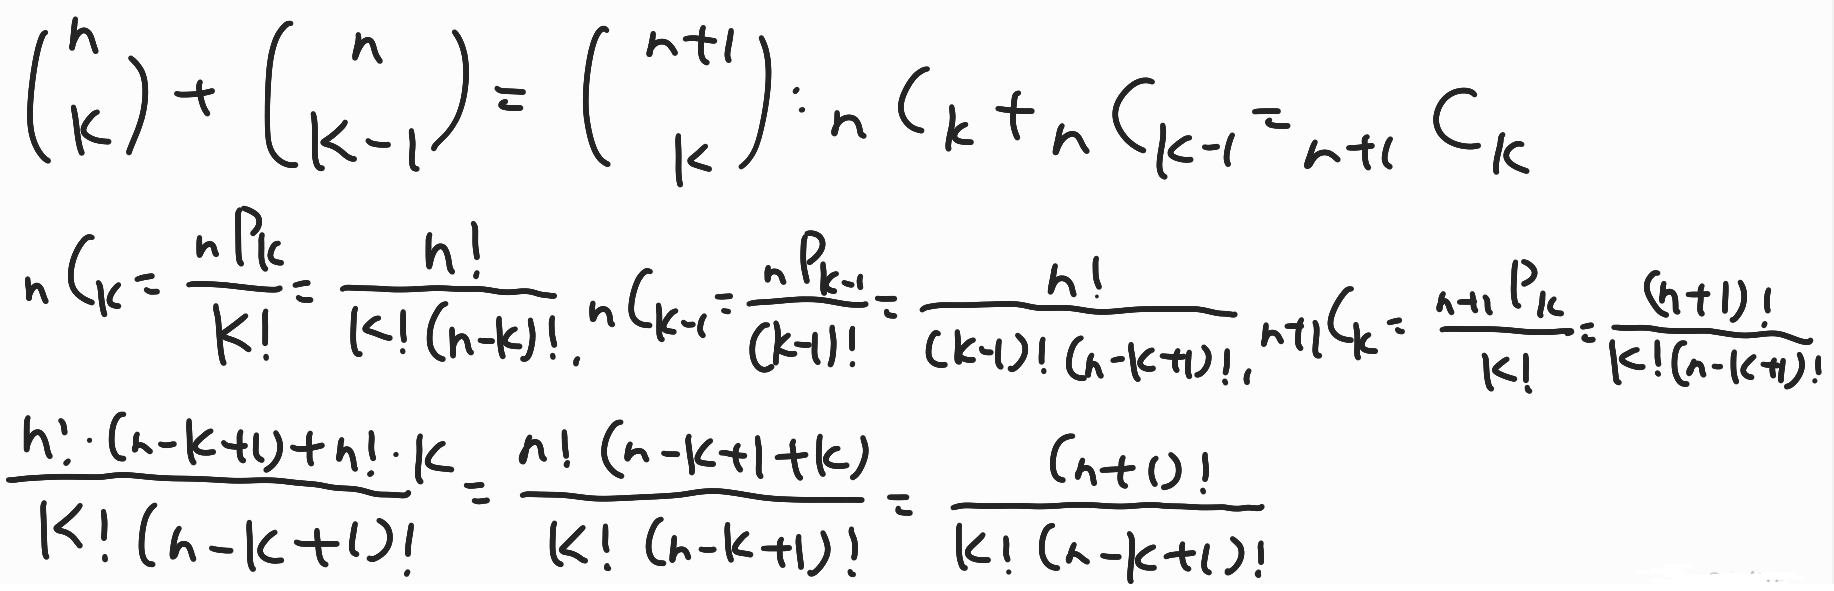 (n k) + (n k-1) = (n+1 k) : nCk + nCk-1 = n+1Ck
nCk = nPk/k! = n!/k!(n-k)!, nCk-1 = nPk-1/(k-1)! = n!/(k-1)!(n-k+1)!, n+1Ck = n+1Pk/k! = (n+1)!/k!(n-k+1)!
n!·(n-k+1)+n!·k/k!(n-k+1)! = n!(n-k+1+k)/k!(n-k+1)! = (n+1)!/k!(n-k+1)!